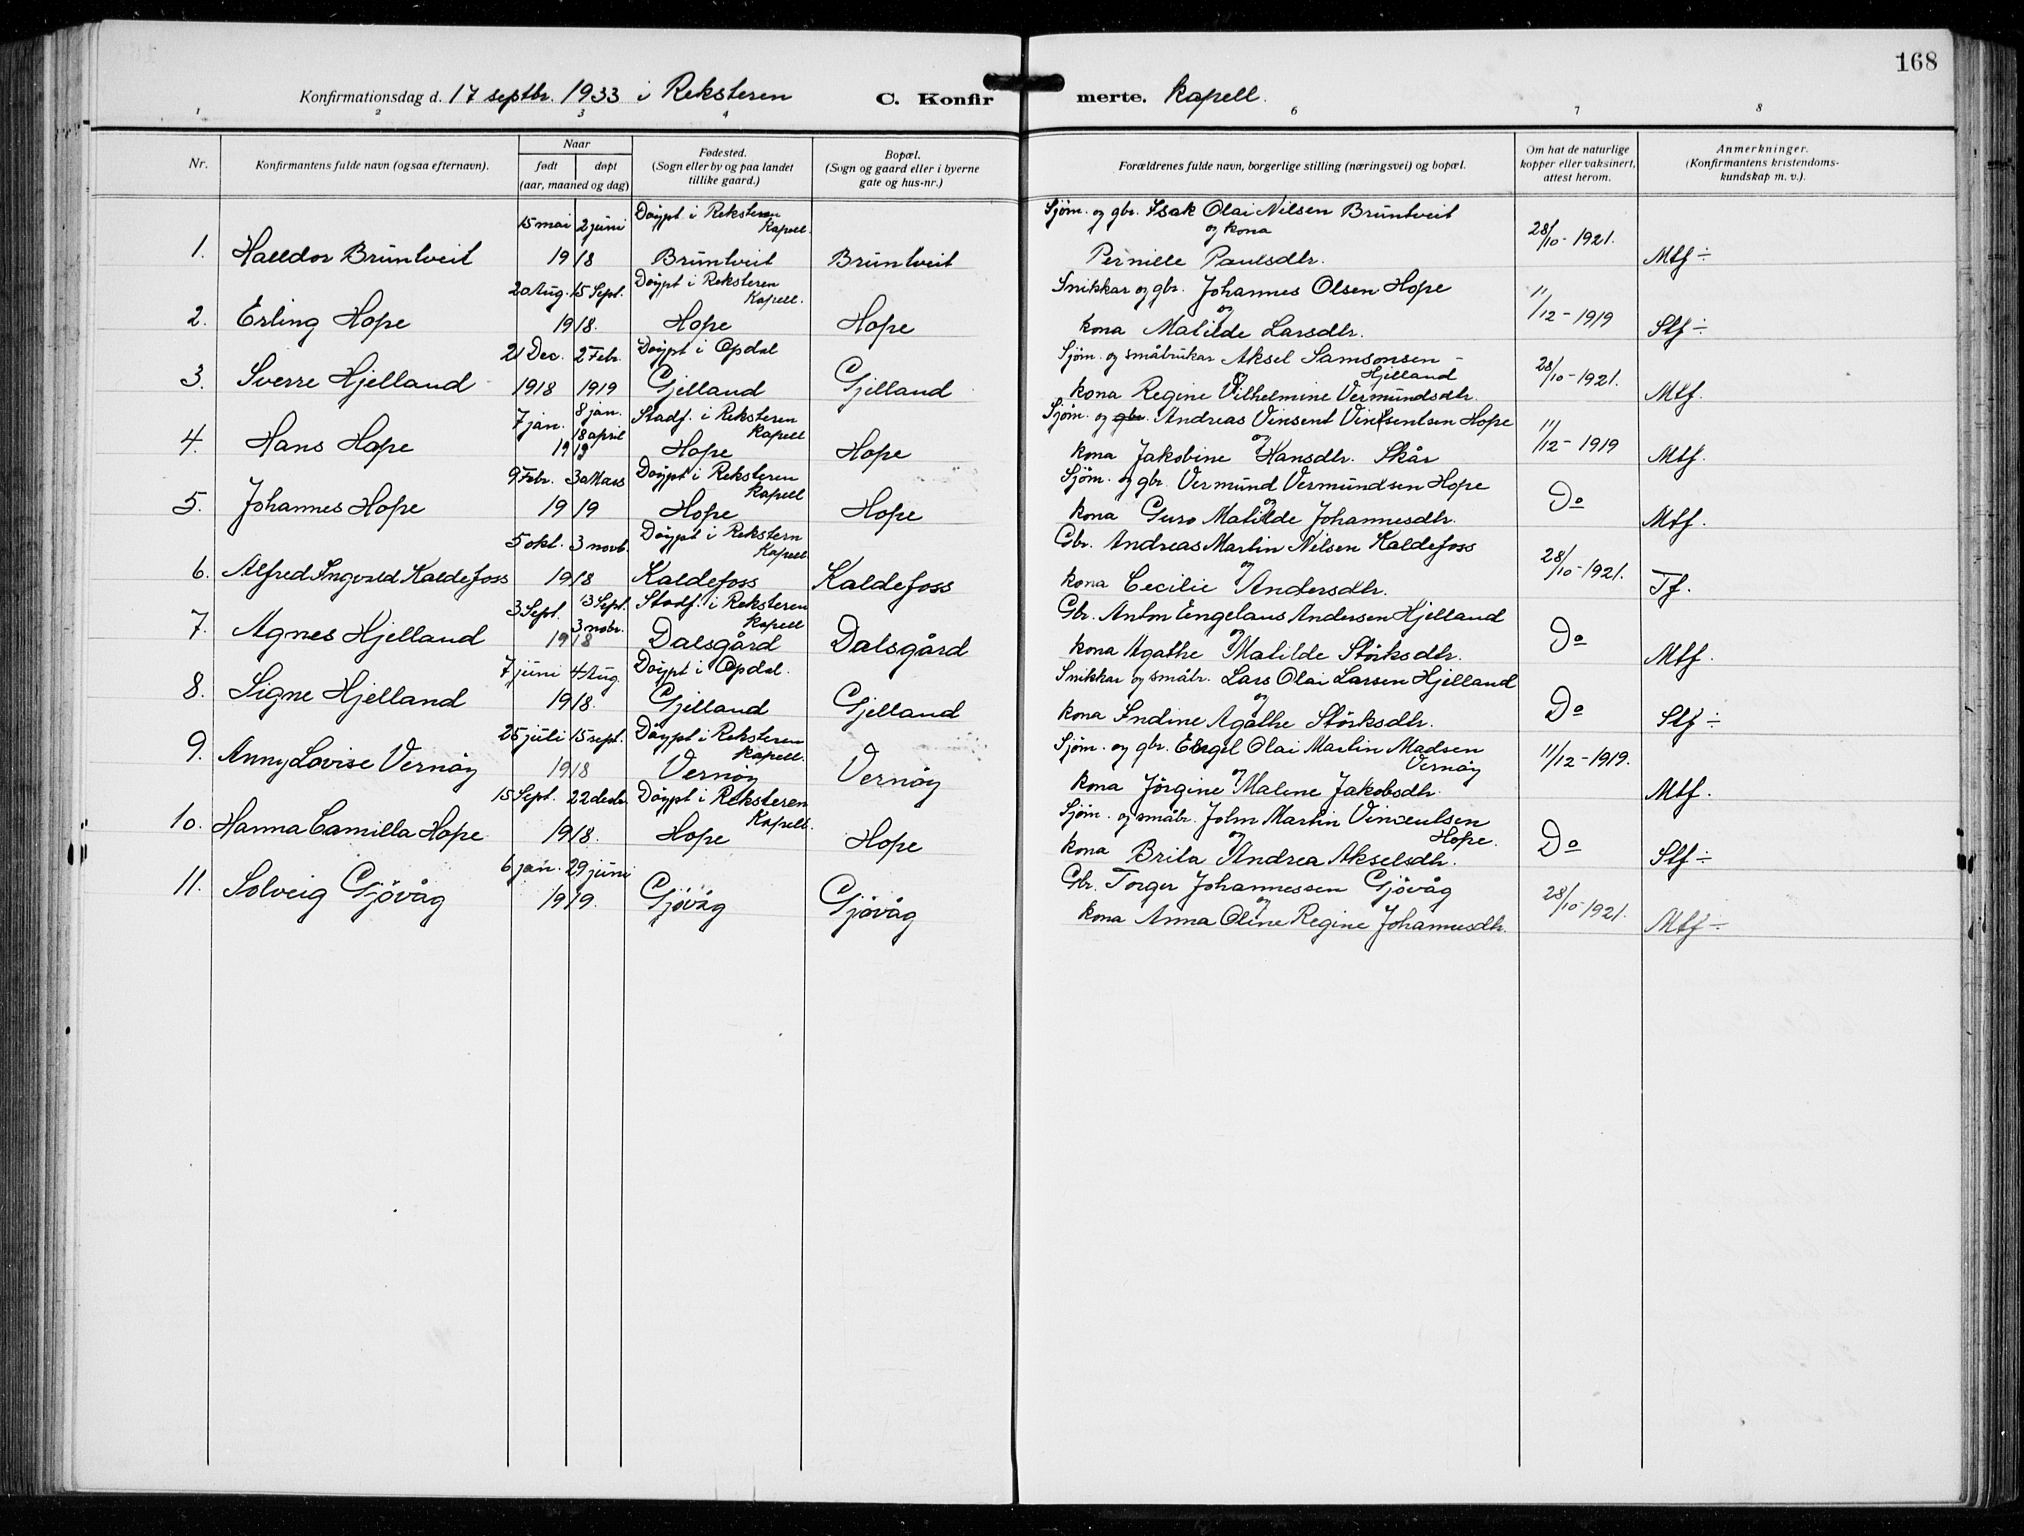 168
Konfirmationsdag d. 17 septbr. 1933 i Reksteren C. Konfir merte. Kapell.
1 2 3 4 6 7 8
Nr. Konfirmantens fulde navn (ogsaa efternavn). Naar født døpt (aar, maaned og dag) Fødested. (Sogn eller by og paa landet tillike gaard.) Bopæl. (Sogn og gaard eller i byerne gate og hus-nr.) Forældrenes fulde navn, borgerlige stilling (næringsvei) og bopæl. Om hat de naturlige kopper eller vaksinert, attest herom. Anmerkninger. (Konfirmantens kristendoms-kundskap m. v.).
15 mai 2 juni Döypt i Reksteren Kapell. Sjöm. og gbr. Isak Olai Nilsen Bruntveit og kona
1. Halldor Bruntveit 1918 Bruntveit Bruntveit Pernille Paulsdtr. 28/10-1921. Mtf ÷
20 Aug. 15 Sept. Döypt i Reksteren Kapell. Snikkar og gbr. Johannes Olsen Hope og
2. Erling Hope 1918. Hope Hope kona Matilde Larsdtr. 11/12-1919 Stf ÷
21 Dec. 2 Febr. Döypt i Opdal Sjöm. og småbrukar Aksel Samsonsen - Hjelland
3. Sverre Hjelland 1918 1919 Gjelland Gjelland kona Regine Vilhelmine Vermundsdtr. 28/10-1921. Mtf.
7 jan. 8 jan. 18 april Stadf. i Reksteren Kapell Sjöm. og gbr. Andreas Vinsent Vinsentsen Hope og
4. Hans Hope 1919 Hope Hope kona Jakobine Hansdtr. Skår 11/12-1919 Mtf.
9 Febr. 30 Mars Döypt i Reksteren Kapell Sjöm. og gbr. Vermund Vermundsen Hope og
5. Johannes Hope 1919 Hope Hope kona Guro Matilde Johannesdtr. Do Mtf.
5 okt. 3 novb. Döypt i Rekstern Kapell Gbr. Andreas Martin Nilsen Kaldefoss og
6. Alfred Ingvald Kaldefoss 1918 Kaldefoss Kaldefoss kona Cecilie Andersdtr. 28/10-1921. Tf.
3 Sept. 13 Sept. 3 nobr. Stadf. i Reksteren Kapell Gbr. Anton Engelaus Andersen Hjelland og
7. Agnes Hjelland 1918 Dalsgård Dalsgård kona Agathe Matilde Störksdtr. Do Mtf.
7 juni 4 Aug. Döypt i Opdal. Snikkar og småbr. Lars Olai Larsen Hjelland og
8. Signe Hjelland 1918. Gjelland Gjelland kona Indine Agathe Störksdtr. Do Stf ÷
25 juli 15 sept. Döypt i Reksteren Kapell. Sjöm. og gbr. Engel Olai Martin Madsen Vernöy og
9. Anny Lovise Vernöy 1918 Vernöy Vernöy kona Jörgine Malene Jakobsdtr. 11/12-1919. Mtf.
15 Sept. 22 desbr. Döypt i Reksteren Kapell. Sjöm. og småbr. John Martin Vincentsen Hope. og
10. Hanna Camilla Hope 1918. Hope Hope kona Brita Andrea Akselsdtr. Do Stf ÷
6 jan. 29 juni Gbr. Torger Johannessen Gjövåg og
11. Solveig Gjövåg 1919. Gjövåg Gjövåg kona Anna Oline Regine Johannesdtr. 28/10-1921. Mtf ÷